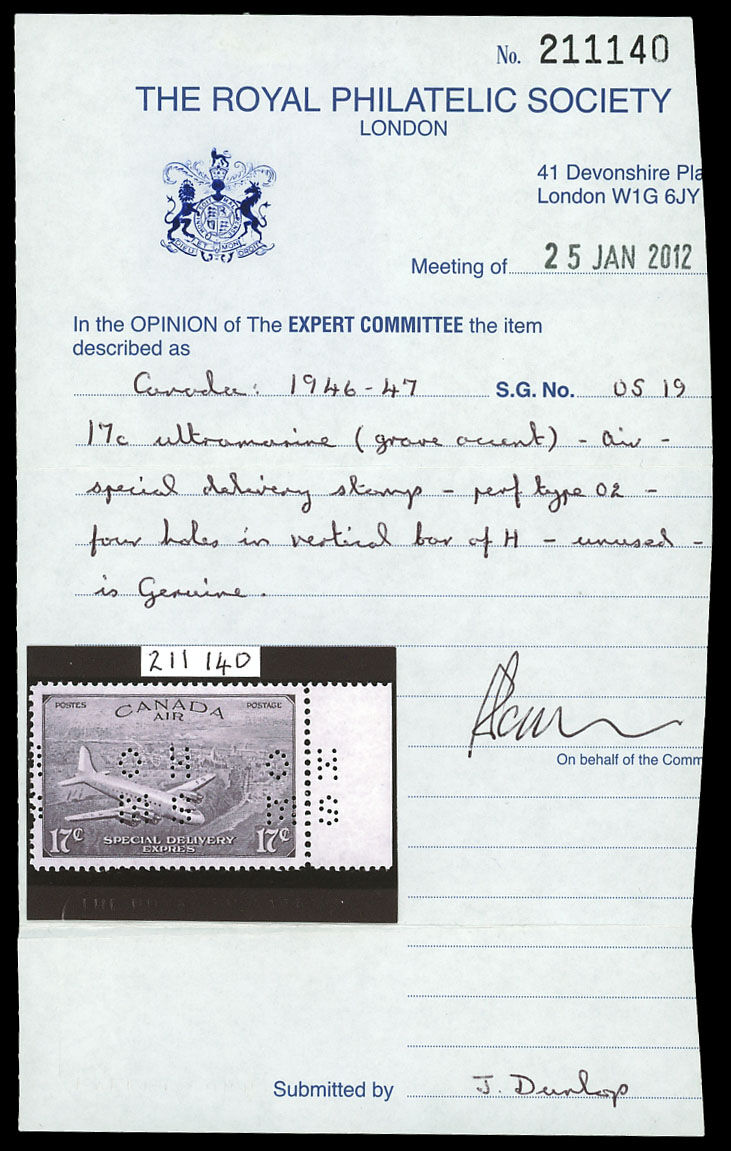 No. 211140
THE ROYAL PHILATELIC SOCIETY
LONDON
41 Devonshire Pla
London W1G 6JY
DIEU ET MON DROIT
Meeting of 25 JAN 2012
In the OPINION of The EXPERT COMMITTEE the item
described as
Canada: 1946-47 S.G. No. OS 19
17c ultramarine (grave accent) - air -
special delivery stamp - perf type O2 -
four holes in vertical bar of H - unused -
is Genuine.
211 140
POSTES CANADA POSTAGE
AIR
OH
17¢ SPECIAL DELIVERY 17¢
EXPRES
On behalf of the Comm
Submitted by J. Dunlop